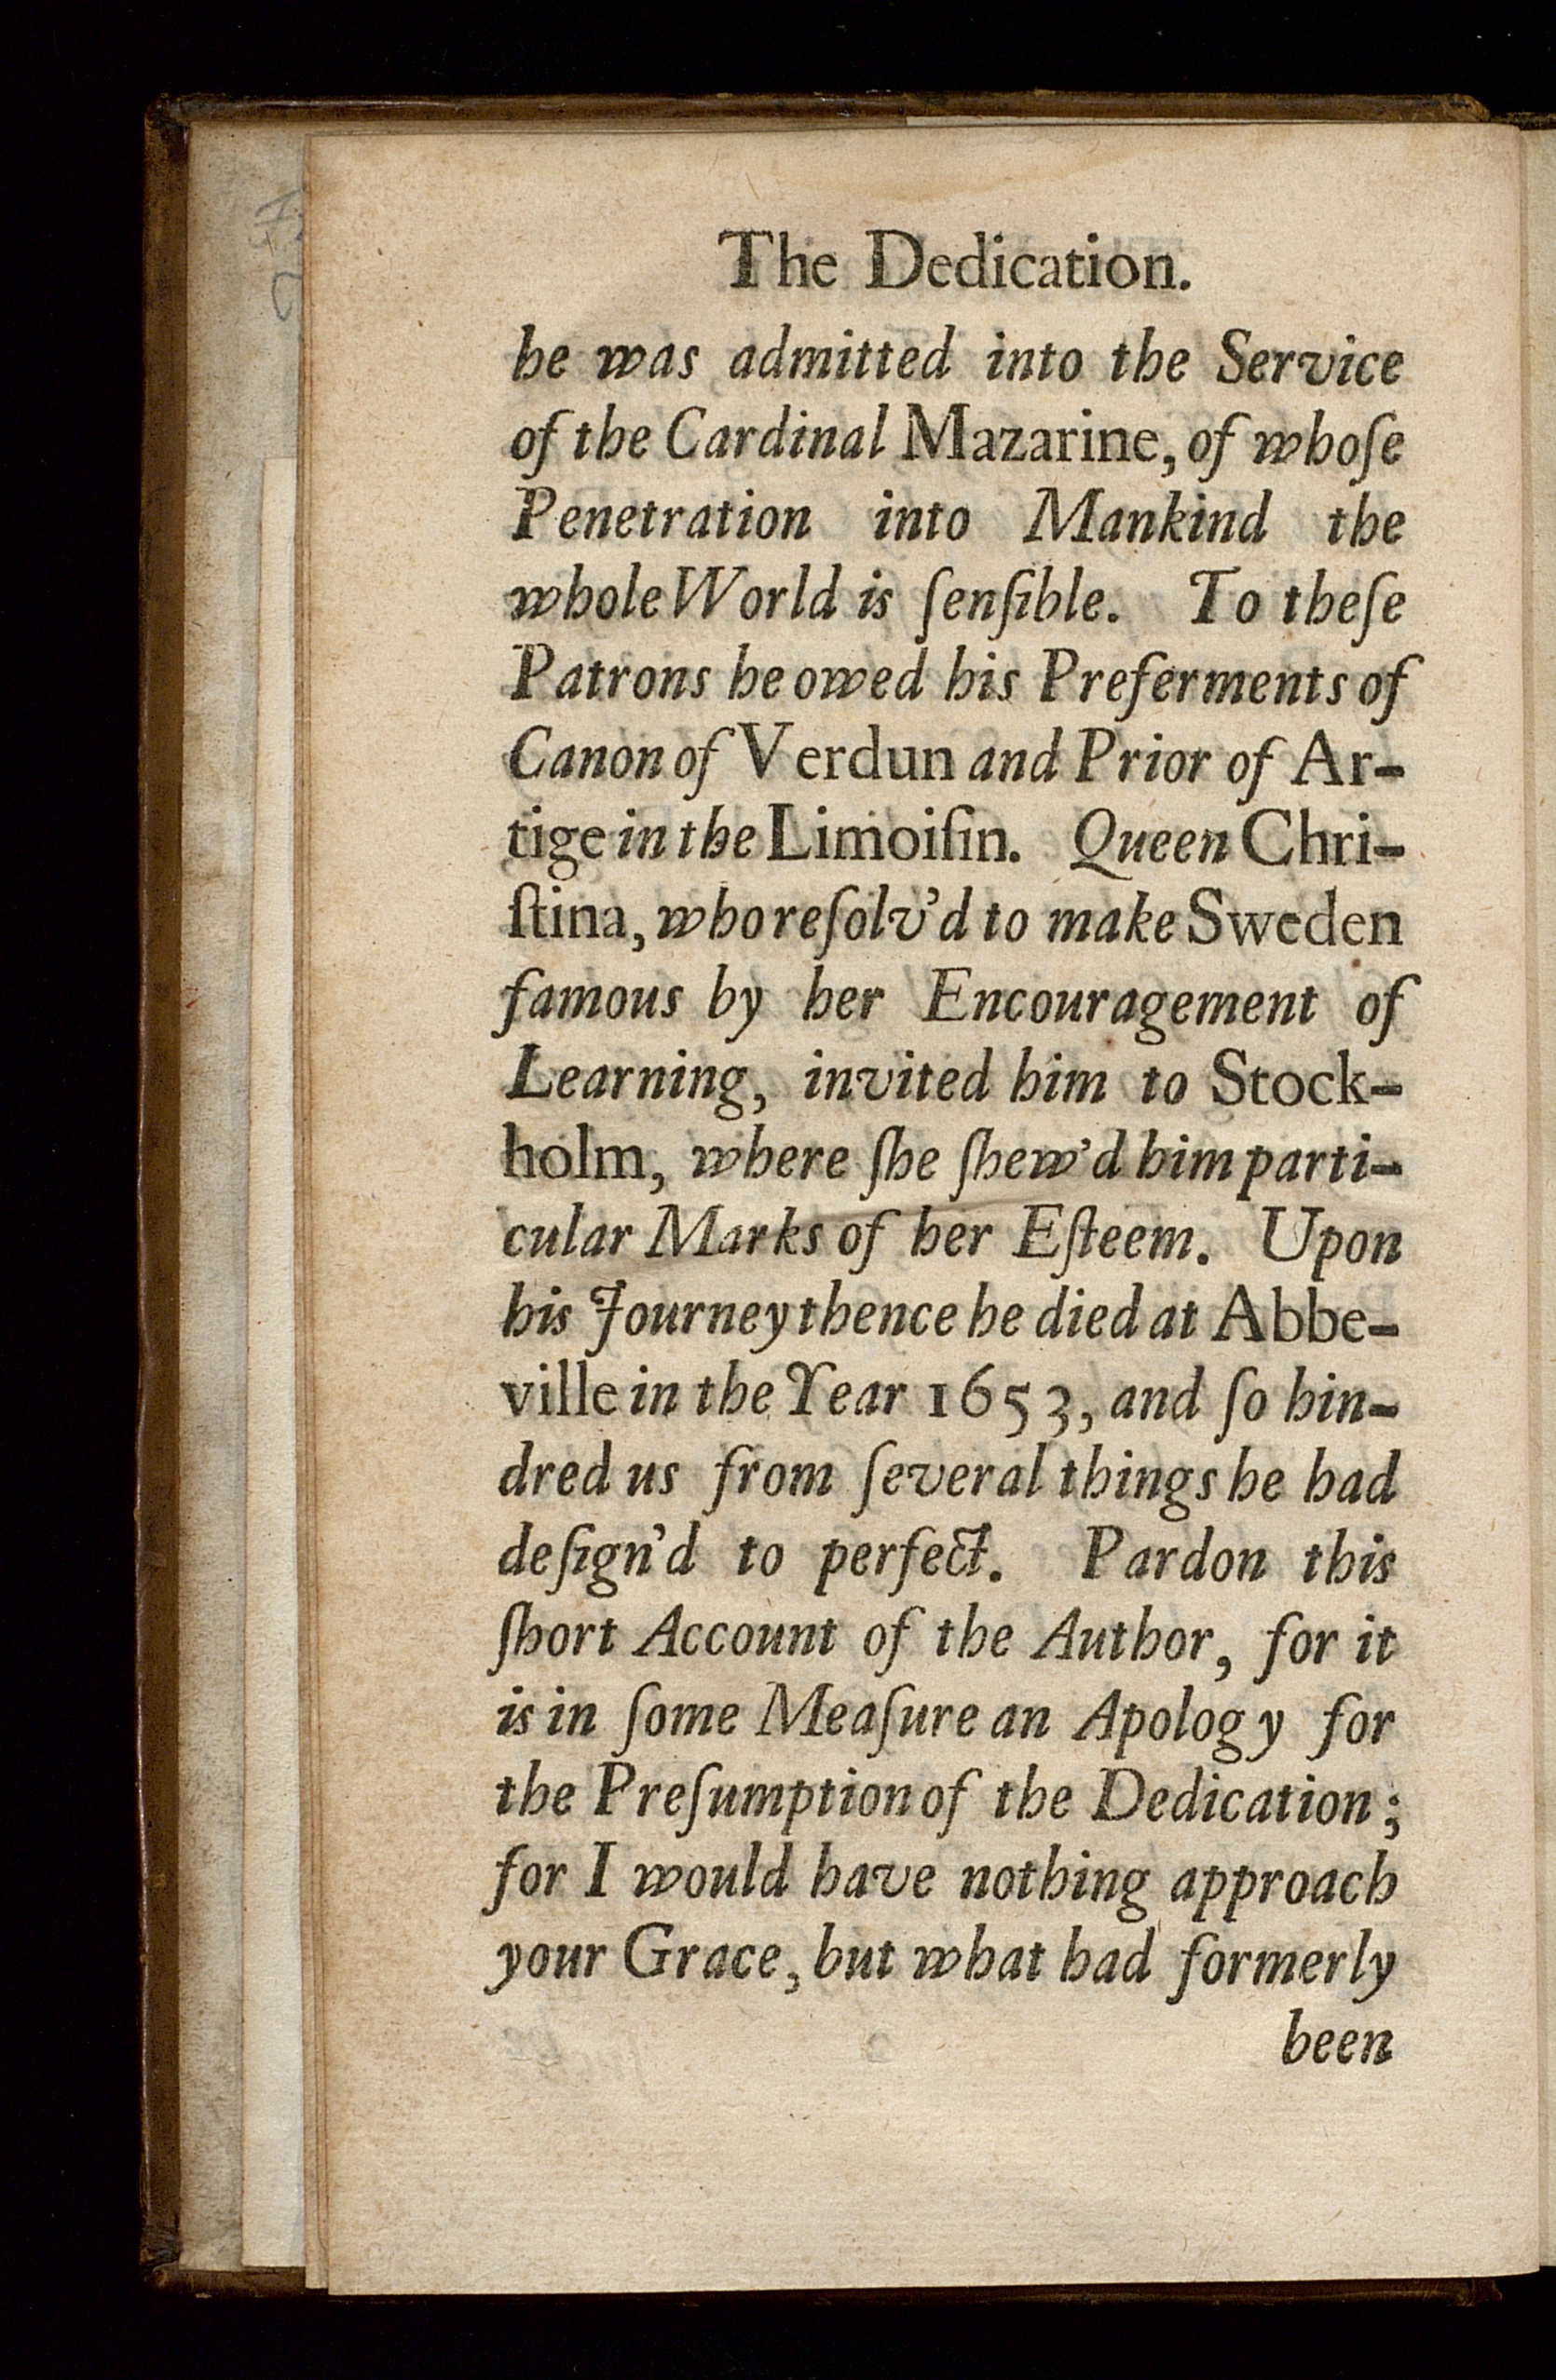 The Dedication.
he was admitted into the Service
of the Cardinal Mazarine, of whoſe
Penetration into Mankind the
whole World is ſenſible. To theſe
Patrons he owed his Preferments of
Canon of Verdun and Prior of Ar-
tige in the Limoiſin. Queen Chri-
ſtina, who reſolv'd to make Sweden
famous by her Encouragement of
Learning, invited him to Stock-
holm, where ſhe ſhew'd him parti-
cular Marks of her Eſteem. Upon
his Journey thence he died at Abbe-
ville in the Year 1653, and ſo hin-
dred us from ſeveral things he had
deſign'd to perfect. Pardon this
ſhort Account of the Author, for it
is in ſome Meaſure an Apology for
the Preſumption of the Dedication;
for I would have nothing approach
your Grace, but what had formerly
been